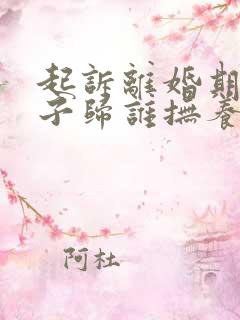 起訴離婚期
子歸誰撫養
阿杜